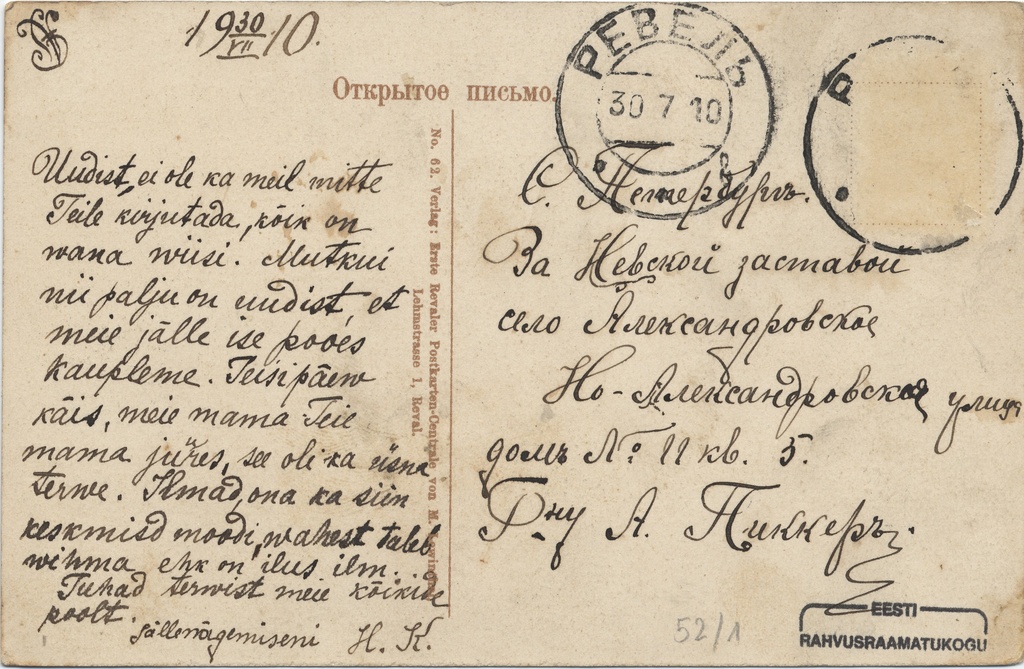 19 30/VII 10.
Открытое письмо.
РЕВЕЛЬ
30 7 10
Р
No. 62. Verlag: Erste Revaler Postkarten-Centrale von M.
Lehmstrasse 1, Reval.
Uudist, ei ole ka meil mitte
Teile kirjutada, kõik on
wana wiisi. Mutkui
nii palju on uudist, et
meie jälle ise poões
kaupleme. Teisipäew
käis, meie mama Teie
mama jüres, see oli ka üsna
terwe. Ilmad, ona ka siin
keskmisd moodi, wahest tuleb
wihma ehk on ilus ilm.
Tuhad terwist meie kõikide
poolt.
Jällenägemiseni H. K.
С. Петербургъ.
За Невской заставой
село Александровское
Но-Александровская улица
домъ № 11 кв. 5.
Г-ну А. Пиккеръ.
52/1
EESTI
RAHVUSRAAMATUKOGU